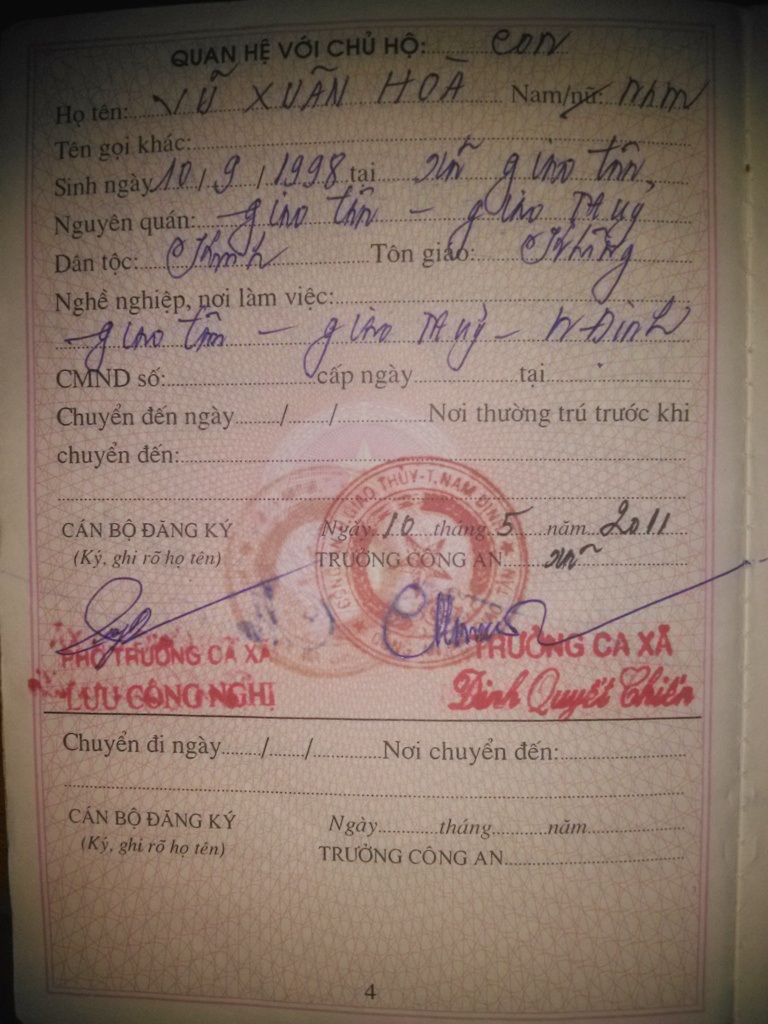 QUAN HỆ VỚI CHỦ HỘ: CON
Họ tên: VŨ XUÂN HOÀ Nam/nữ: Nam
Tên gọi khác:
Sinh ngày 10 / 9 / 1998 tại xã giao tân,
Nguyên quán: giao tân - giao Thuỷ
Dân tộc: Kinh Tôn giáo: Không
Nghề nghiệp, nơi làm việc:
giao tân - giao Thuỷ - N Định
CMND số: cấp ngày tại
Chuyển đến ngày / / Nơi thường trú trước khi
chuyển đến:
CÁN BỘ ĐĂNG KÝ Ngày 10 tháng 5 năm 2011
(Ký, ghi rõ họ tên) TRƯỞNG CÔNG AN xã
GIAO THỦY-T.NAM ĐỊNH
PHÓ TRƯỞNG CA XÃ TRƯỞNG CA XÃ
LƯU CÔNG NGHỊ Đinh Quyết Chiến
Chuyển đi ngày / / Nơi chuyển đến:
CÁN BỘ ĐĂNG KÝ Ngày tháng năm
(Ký, ghi rõ họ tên) TRƯỞNG CÔNG AN
4